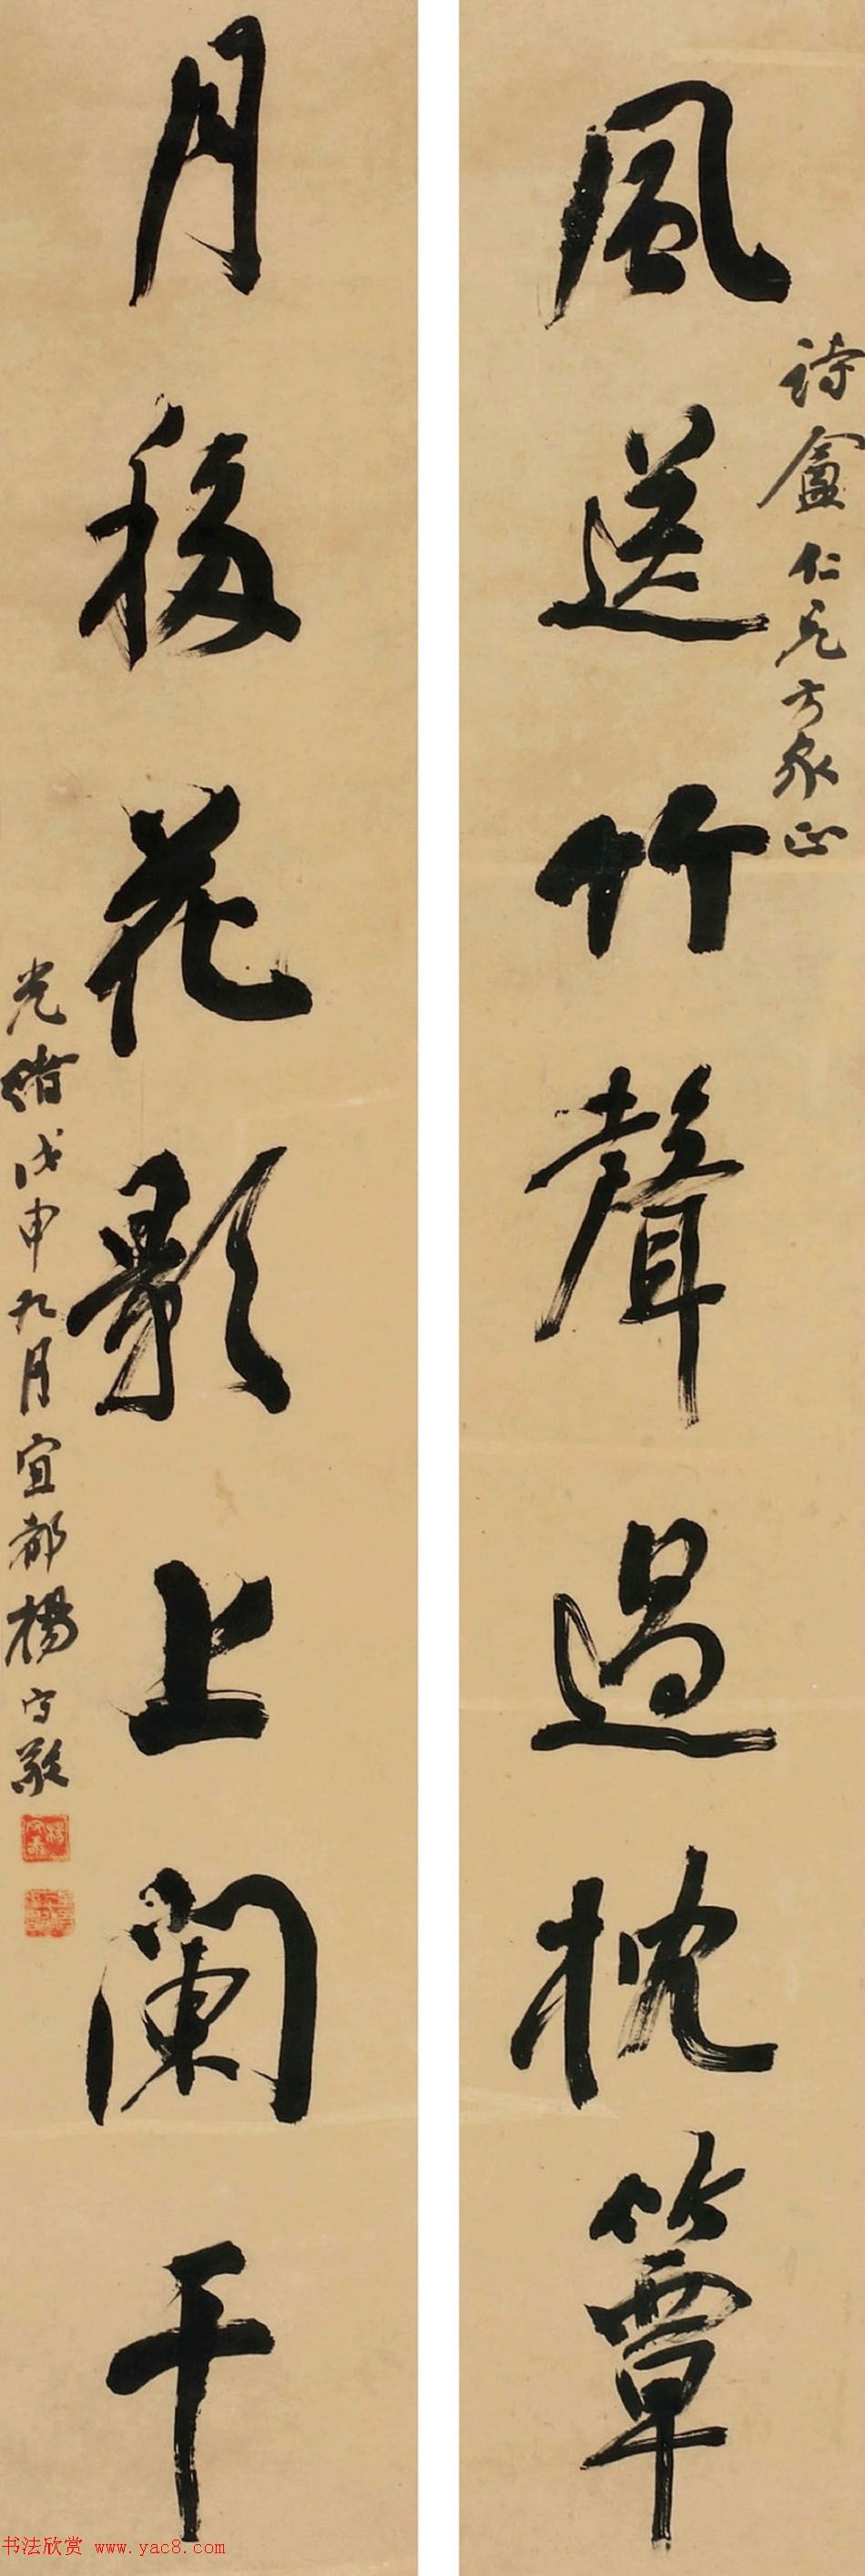 風送竹聲過枕簟
詩盦仁兄方家正
月移花影上闌干
光緒戊申九月宜都楊守敬
书法欣赏 www.yac8.com